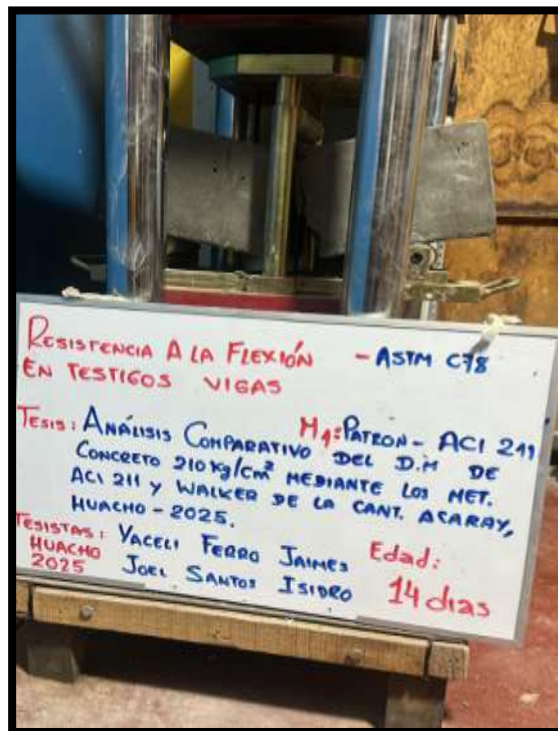 RESISTENCIA A LA FLEXIÓN - ASTM C78
EN TESTIGOS VIGAS
M1: PATRON - ACI 211
TESIS: ANÁLISIS COMPARATIVO DEL D.M DE
CONCRETO 210 kg/cm² MEDIANTE LOS MET.
ACI 211 Y WALKER DE LA CANT. ACARAY,
HUACHO - 2025.
TESISTAS: YACELI FERRO JAIMES
HUACHO JOEL SANTOS ISIDRO
2025
Edad:
14 dias